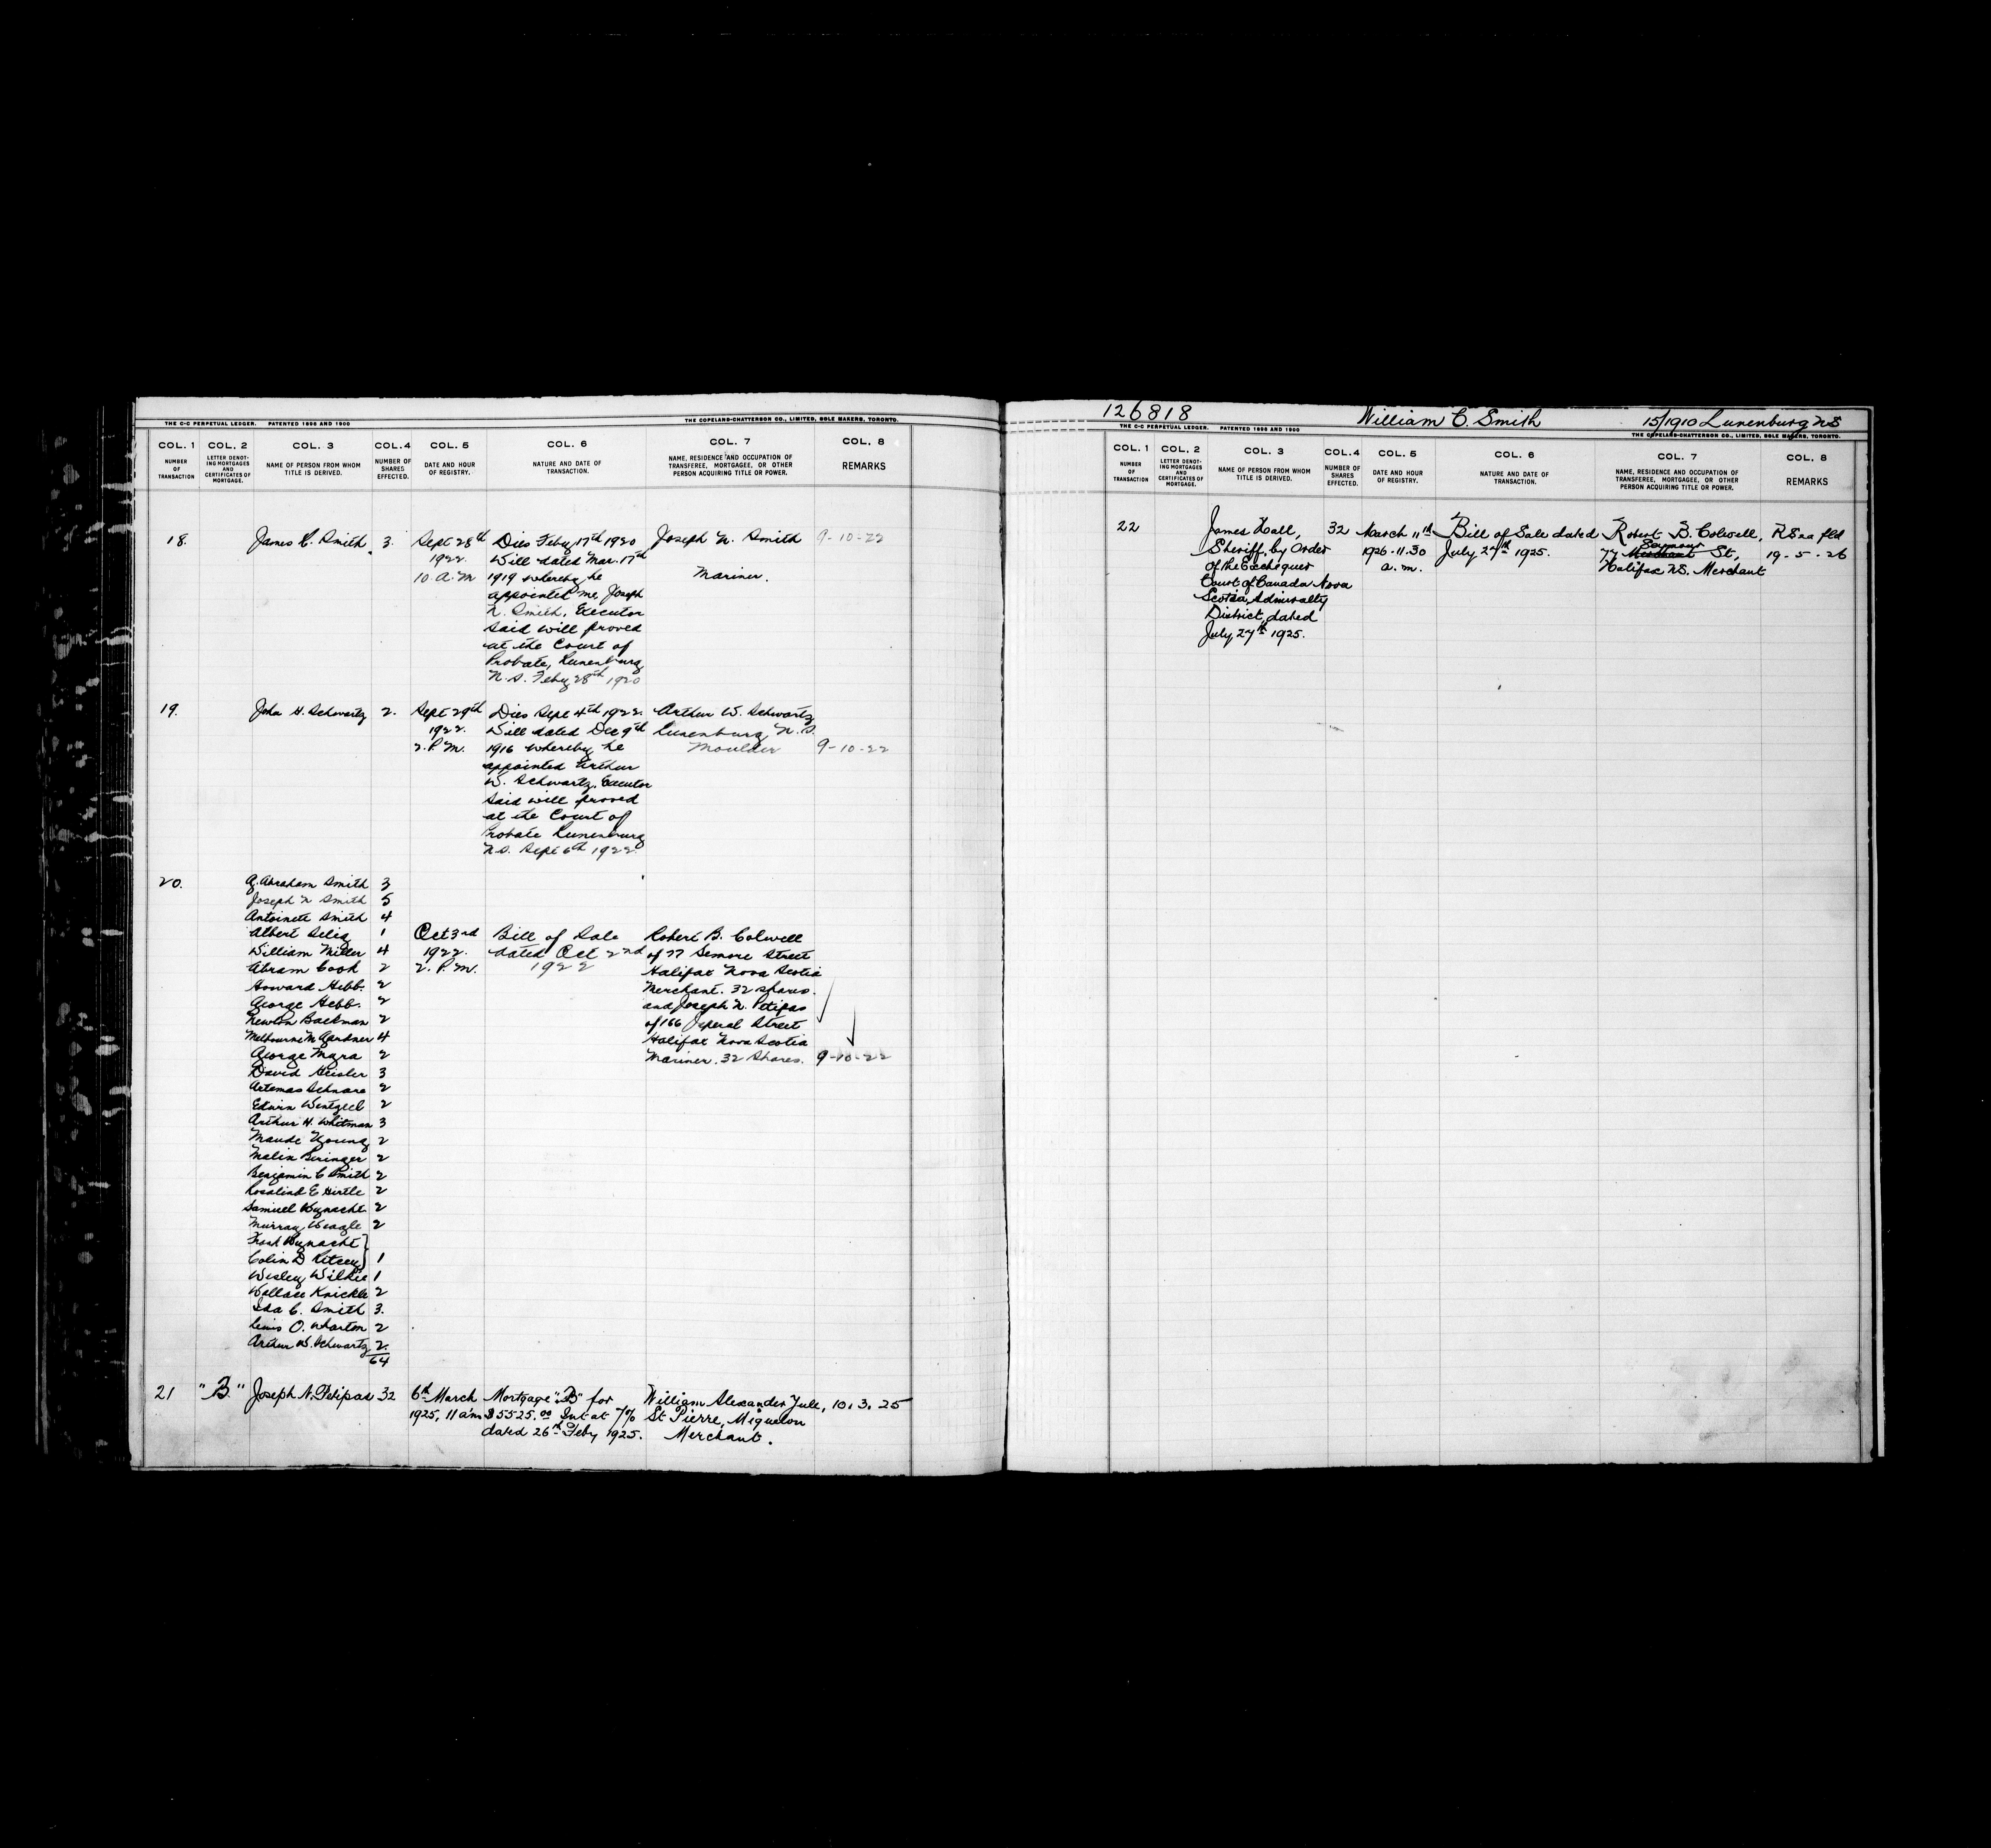 THE C-C PERPETUAL LEDGER. PATENTED 1898 AND 1900
THE COPELAND-CHATTERSON CO., LIMITED, SOLE MAKERS, TORONTO.
COL. 1 COL. 2 COL. 3 COL. 4 COL. 5 COL. 6 COL. 7 COL. 8
NUMBER OF TRANSACTION
LETTER DENOTING MORTGAGES AND CERTIFICATES OF MORTGAGE.
NAME OF PERSON FROM WHOM TITLE IS DERIVED.
NUMBER OF SHARES EFFECTED.
DATE AND HOUR OF REGISTRY.
NATURE AND DATE OF TRANSACTION.
NAME, RESIDENCE AND OCCUPATION OF TRANSFEREE, MORTGAGEE, OR OTHER PERSON ACQUIRING TITLE OR POWER.
REMARKS
18. James C. Smith 3. Sept 28th Dies Feby 17th 1920 Joseph N. Smith 9-10-22
1922. Will dated Mar. 17th
10. A.M 1919 whereby he Mariner.
appointed me, Joseph
N. Smith, Executor
said will proved
at the Court of
Probate, Lunenburg
N.S. Feby 28th 1920
19. John H. Schwartz 2. Sept 29th Dies Sept 4th 1922. Arthur W. Schwartz
1922. Will dated Dec 9th Lunenburg N.S.
2. P.M. 1916 whereby he Moulder 9-10-22
appointed Arthur
W. Schwartz, Executor
said will proved
at the Court of
Probate Lunenburg
N.S. Sept 6th 1922
20. A. Abraham Smith 3
Joseph N Smith 5
Antoinete Smith 4
Albert Selig 1 Oct 3rd Bill of Sale Robert B. Colwell
William Miller 4 1922. dated Oct 2nd of 77 Semore Street
Abram Cook 2 2. P.M. 1922 Halifax Nova Scotia
Howard Hebb. 2 Merchant. 32 shares.
George Hebb. 2 and Joseph N. Petipas
Newton Backman 2 of 166 Street
Melbourne M Gardner 4 Halifax Nova Scotia
George Myra 2 Mariner. 32 Shares. 9-10-22
David Heisler 3
Artemas Schnare 2
Edwin Wentzell 2
Arthur H. Whitman 3
Maude Young 2
Malin Beringer 2
Benjamin C Smith 2
Rosalind E Hirtle 2
Samuel Bynacht 2
Murray Weagle 2
Frank Bynacht }
Colin D Ritcey } 1
Wesley Wilkie 1
Wallace Knickle 2
Ida C. Smith 3.
Lewis O. Wharton 2
Arthur W. Schwartz 2.
64
21 "B." Joseph N. Petipas 32 6th March Mortgage "B" for William Alexander Yule, 10.3.25
1925, 11 a.m $5525.00 Int at 7% St Pierre, Miquelon
dated 26th Feby 1925. Merchant.
126818 William C. Smith 15/1910 Lunenburg NS
THE C-C PERPETUAL LEDGER. PATENTED 1898 AND 1900
THE COPELAND-CHATTERSON CO., LIMITED, SOLE MAKERS, TORONTO.
COL. 1 COL. 2 COL. 3 COL. 4 COL. 5 COL. 6 COL. 7 COL. 8
NUMBER OF TRANSACTION
LETTER DENOTING MORTGAGES AND CERTIFICATES OF MORTGAGE.
NAME OF PERSON FROM WHOM TITLE IS DERIVED.
NUMBER OF SHARES EFFECTED.
DATE AND HOUR OF REGISTRY.
NATURE AND DATE OF TRANSACTION.
NAME, RESIDENCE AND OCCUPATION OF TRANSFEREE, MORTGAGEE, OR OTHER PERSON ACQUIRING TITLE OR POWER.
REMARKS
22 James Hall, 32 March 11th Bill of Sale dated Robert B. Colwell,
Sheriff, by Order 1926-11.30 July 27th 1925. 77 Seymour St, 19-5-26
of the Exchequer a.m. Halifax NS. Merchant
Court of Canada Nova
Scotia, Admiralty
District, dated
July 27th 1925.